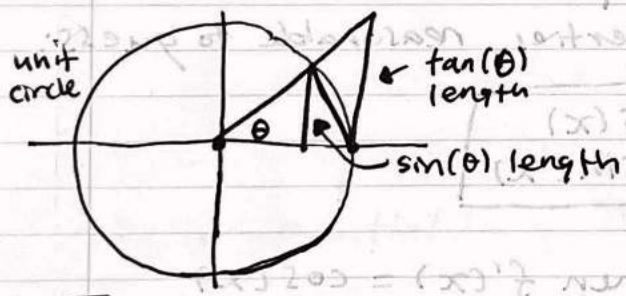 unit
circle
tan(θ)
length
θ
sin(θ) length